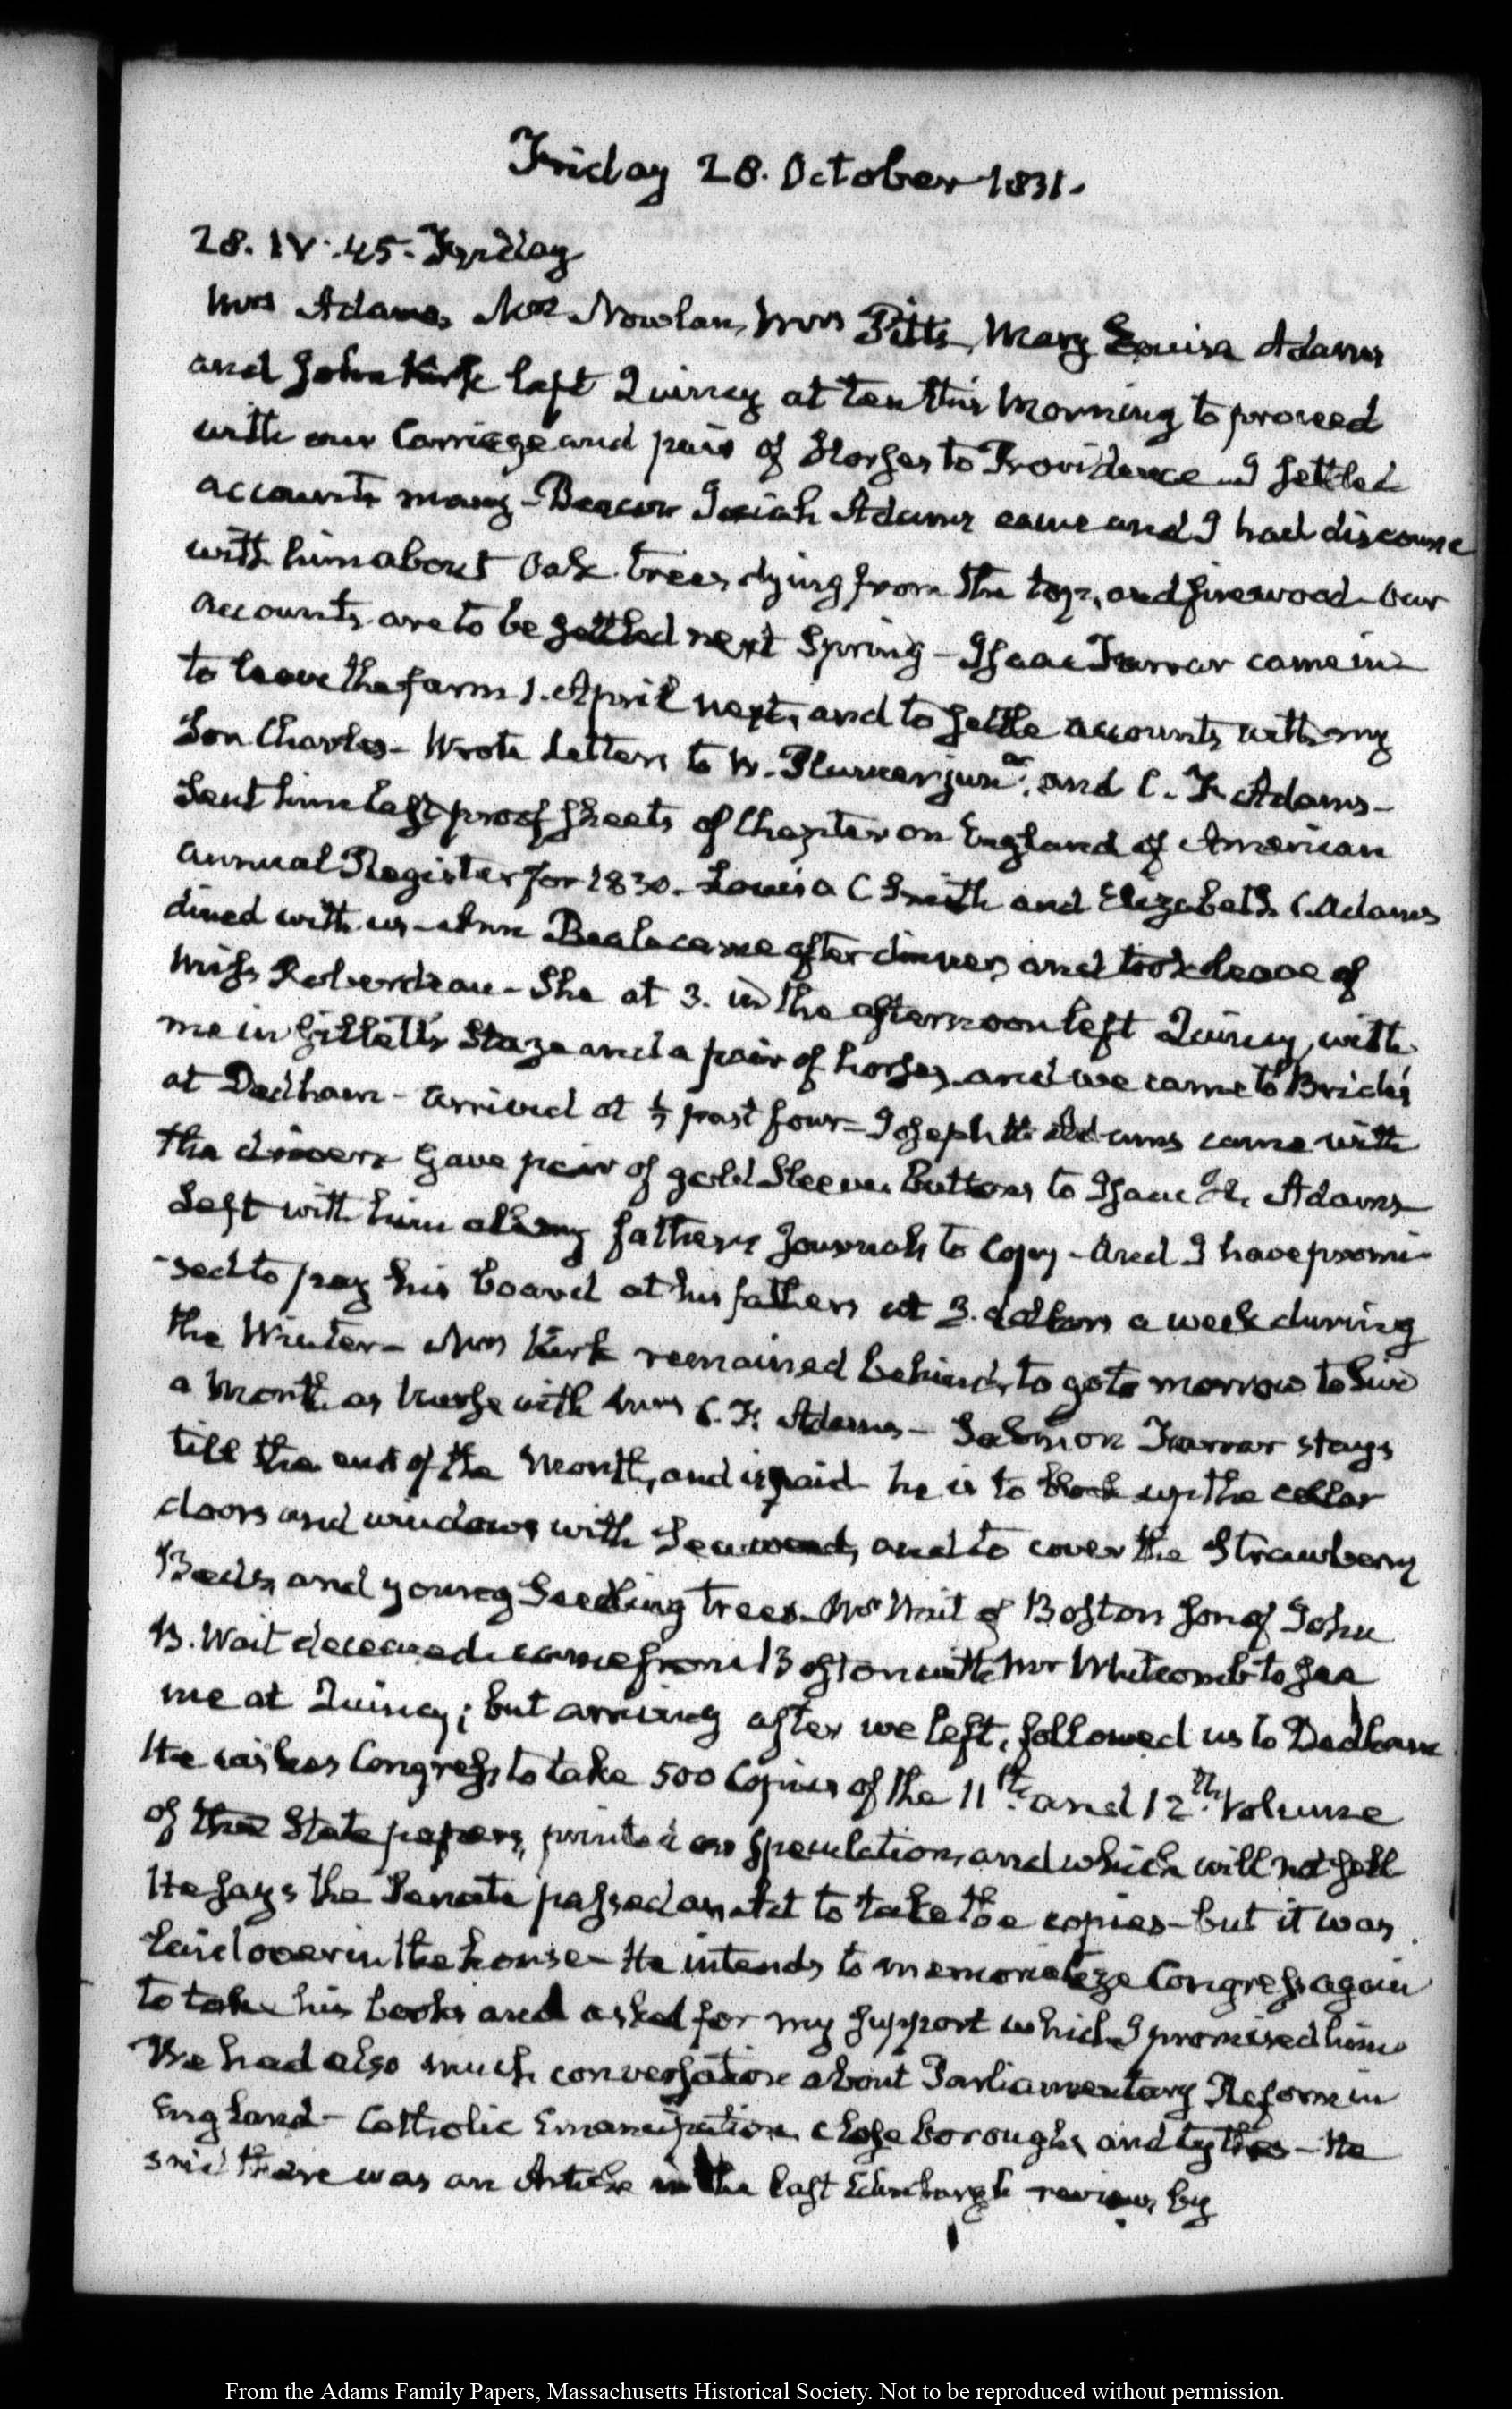 Friday 28. October 1831.
28. IV:45. Friday
Mrs Adams, Mrs Nowlan, Mrs Pitts, Mary Louisa Adams
and John Kirk left Quincy at ten this Morning to proceed
with our Carriage and pair of Horses to Providence I settled
accounts many - Deacon Josiah Adams came and I had discourse
with him about Oak trees dying from the top, and firewood - our
accounts are to be settled next Spring - Isaac Farrar came in
to leave the farm 1. April next, and to settle accounts with my
Son Charles - Wrote Letters to W. Plumer junr. and C. F. Adams -
Sent him last proof sheets of Chapter on England of American
annual Register for 1830. Louisa C Smith and Elizabeth C. Adams
dined with us - Ann Beale came after dinner, and took leave of
Miss Roberdeau - She at 3. in the afternoon left Quincy, with
me in Gillett's Stage and a pair of horses, and we came to Bride's
at Dedham - arrived at ½ past four - Joseph H. Adams came with
the driver. Gave pair of gold Sleeve Buttons to Isaac H. Adams
Left with him all my fathers Journals to Copy - And I have promi-
-sed to pay his board at his fathers at 3. dollars a week during
the Winter - Mrs Kirk remained behind, to go to morrow to live
a Month as Nurse with Mrs C. F. Adams - Salmon Farrar stays
till the end of the Month, and is paid he is to block up the cellar
doors and windows with Seaweed, and to cover the Strawberry
Beds, and young Seedling trees. Mr Wait of Boston Son of John
B. Wait deceased came from Boston with Mr Whitcomb to see
me at Quincy; but arriving after we left, followed us to Dedham
He wishes Congress to take 500 Copies of the 11th. and 12th. Volume
of the State papers, printed on speculation, and which will not sell
He says the Senate passed an Act to take the copies - but it was
laid over in the house - He intends to memorialize Congress again
to take his books and asked for my support which I promised him
We had also much conversation about Parliamentary Reform in
England - Catholic Emancipation close boroughs and tythes - He
said there was an Article in the last Edinburgh review, by
From the Adams Family Papers, Massachusetts Historical Society. Not to be reproduced without permission.